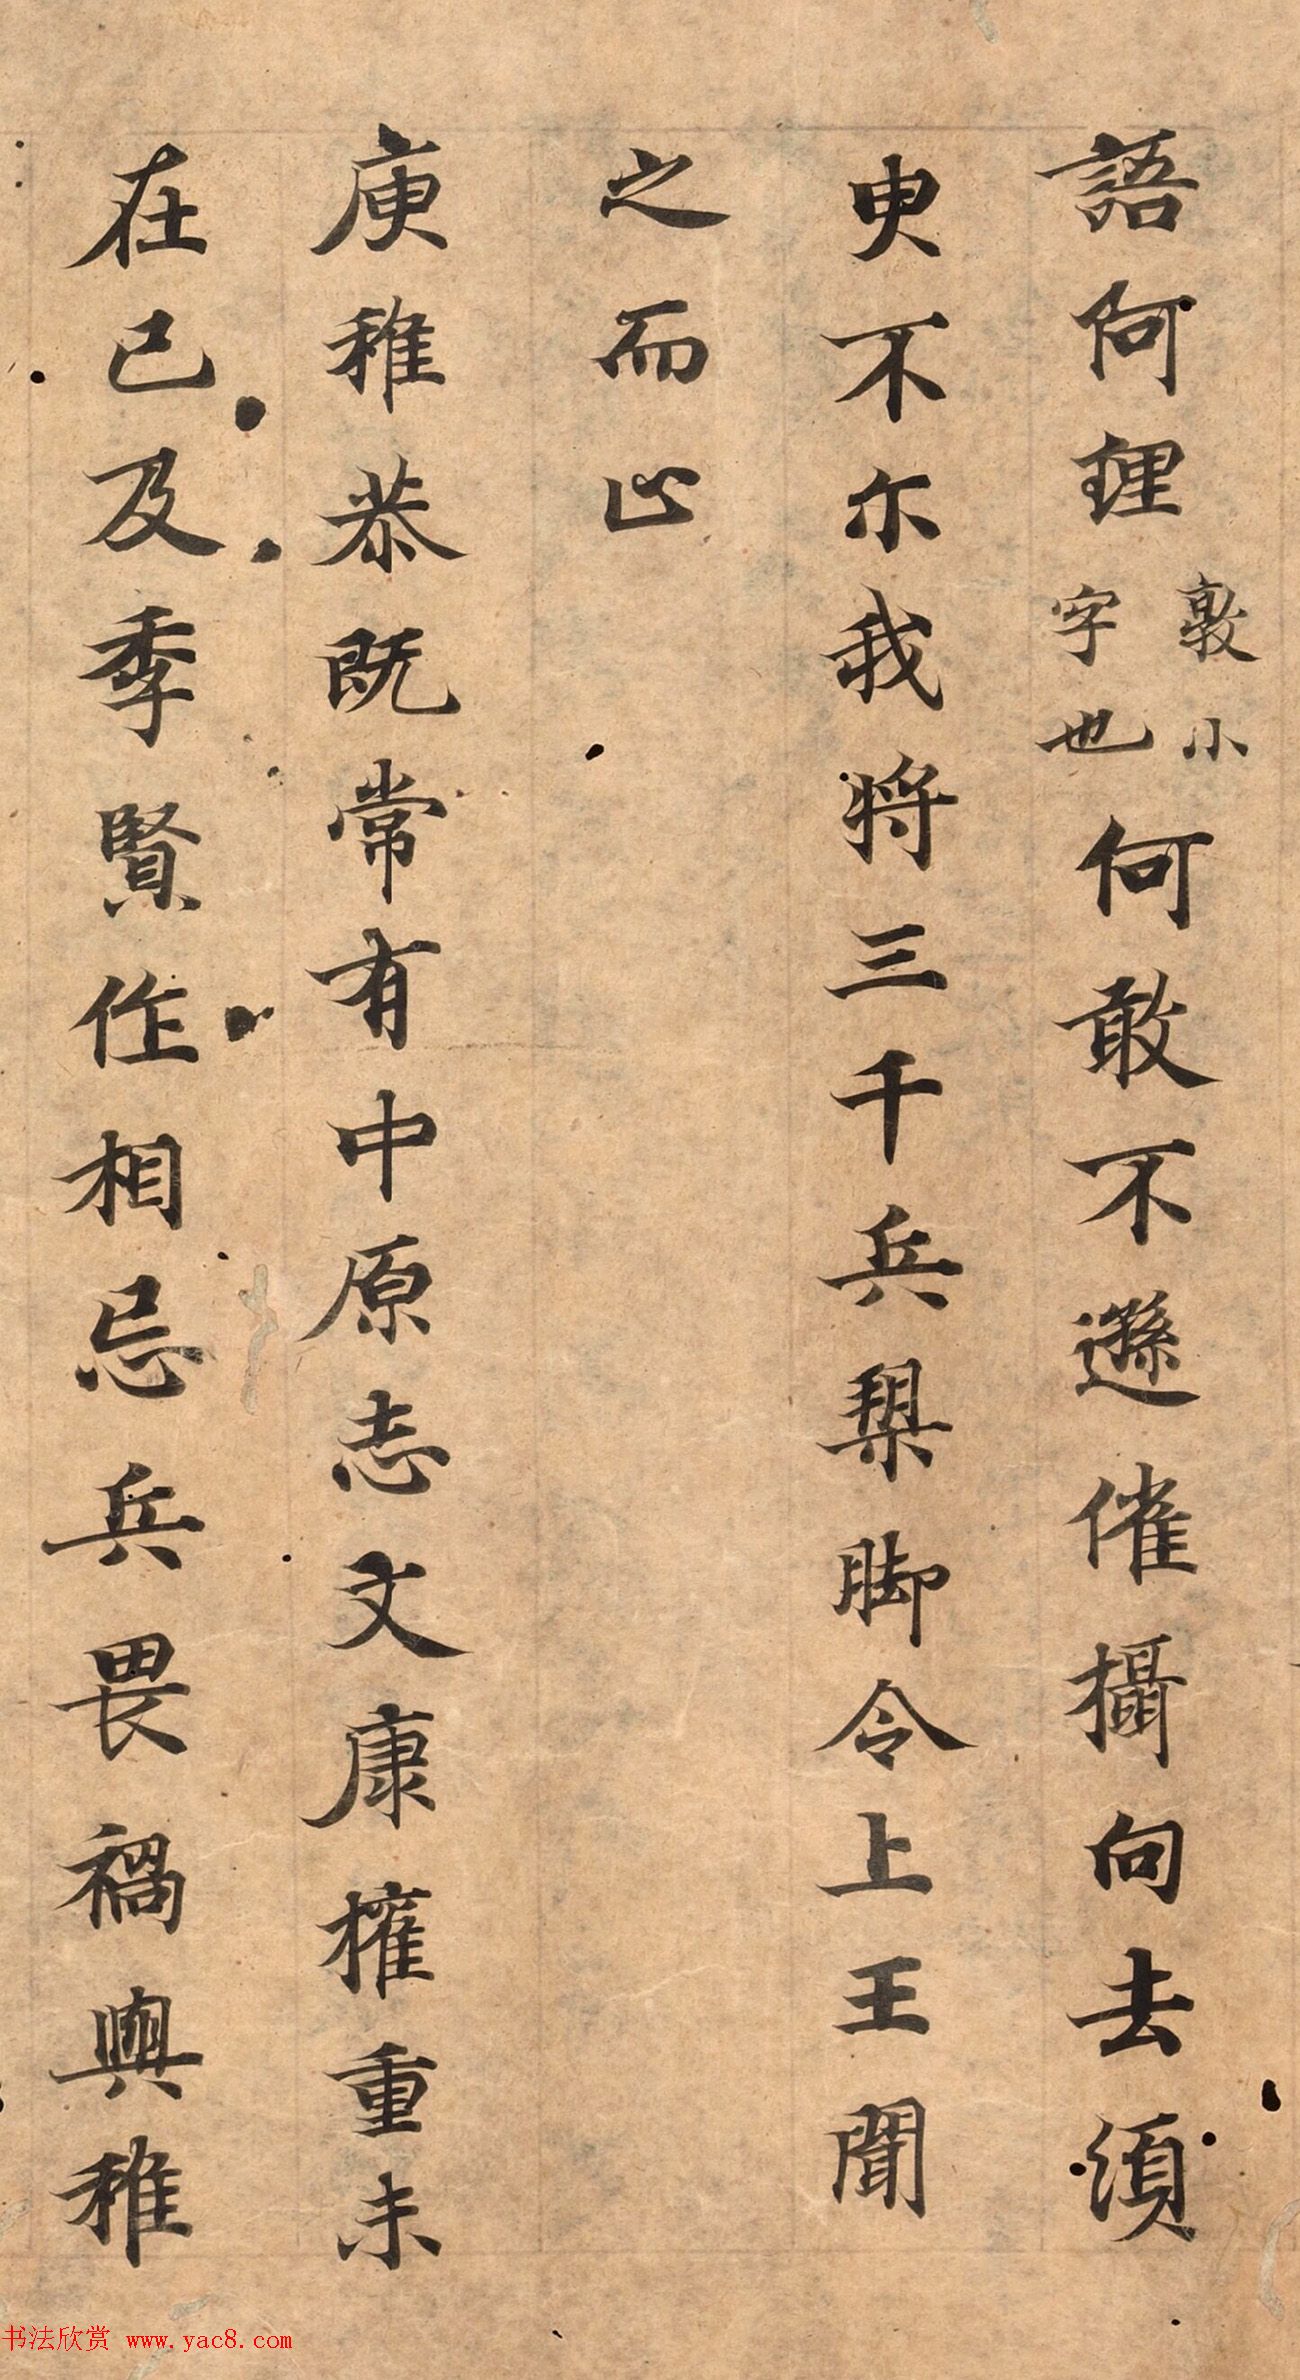 語何狸敦小字也何敢不遜催攝向去須
臾不尒我將三千兵槊脚令上王聞
之而止
庾稚恭既常有中原志文康擁重未
在己及季賢作相忌兵畏禍與稚
书法欣赏 www.yac8.com